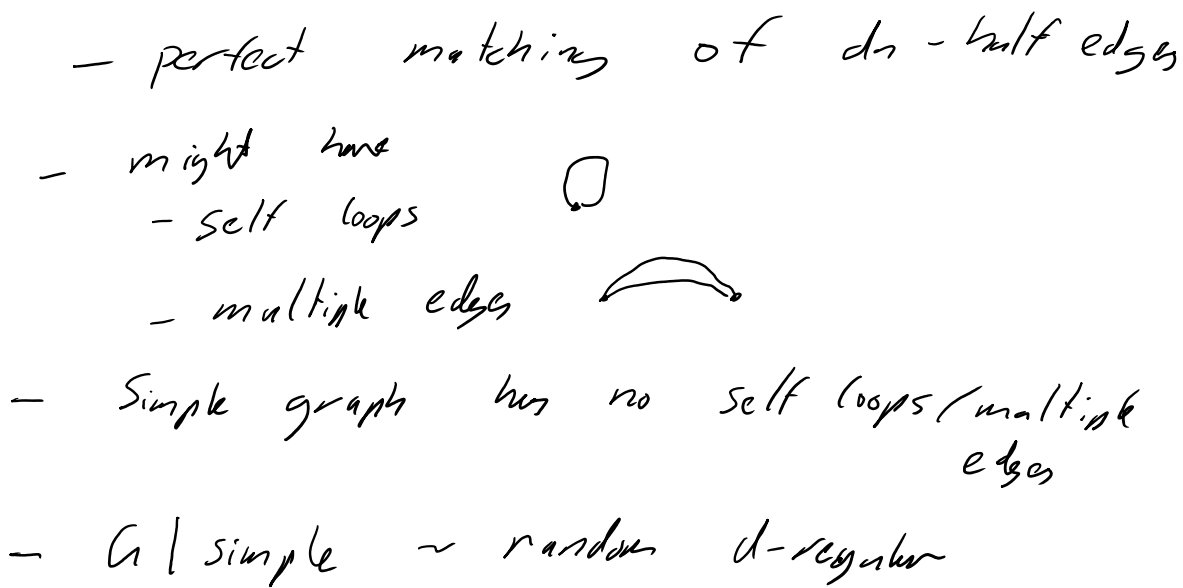 - perfect matching of dn - half edges
- might have
- self loops
- multiple edges
- Simple graph has no self loops/multiple
edges
- G | simple ~ random d-regular